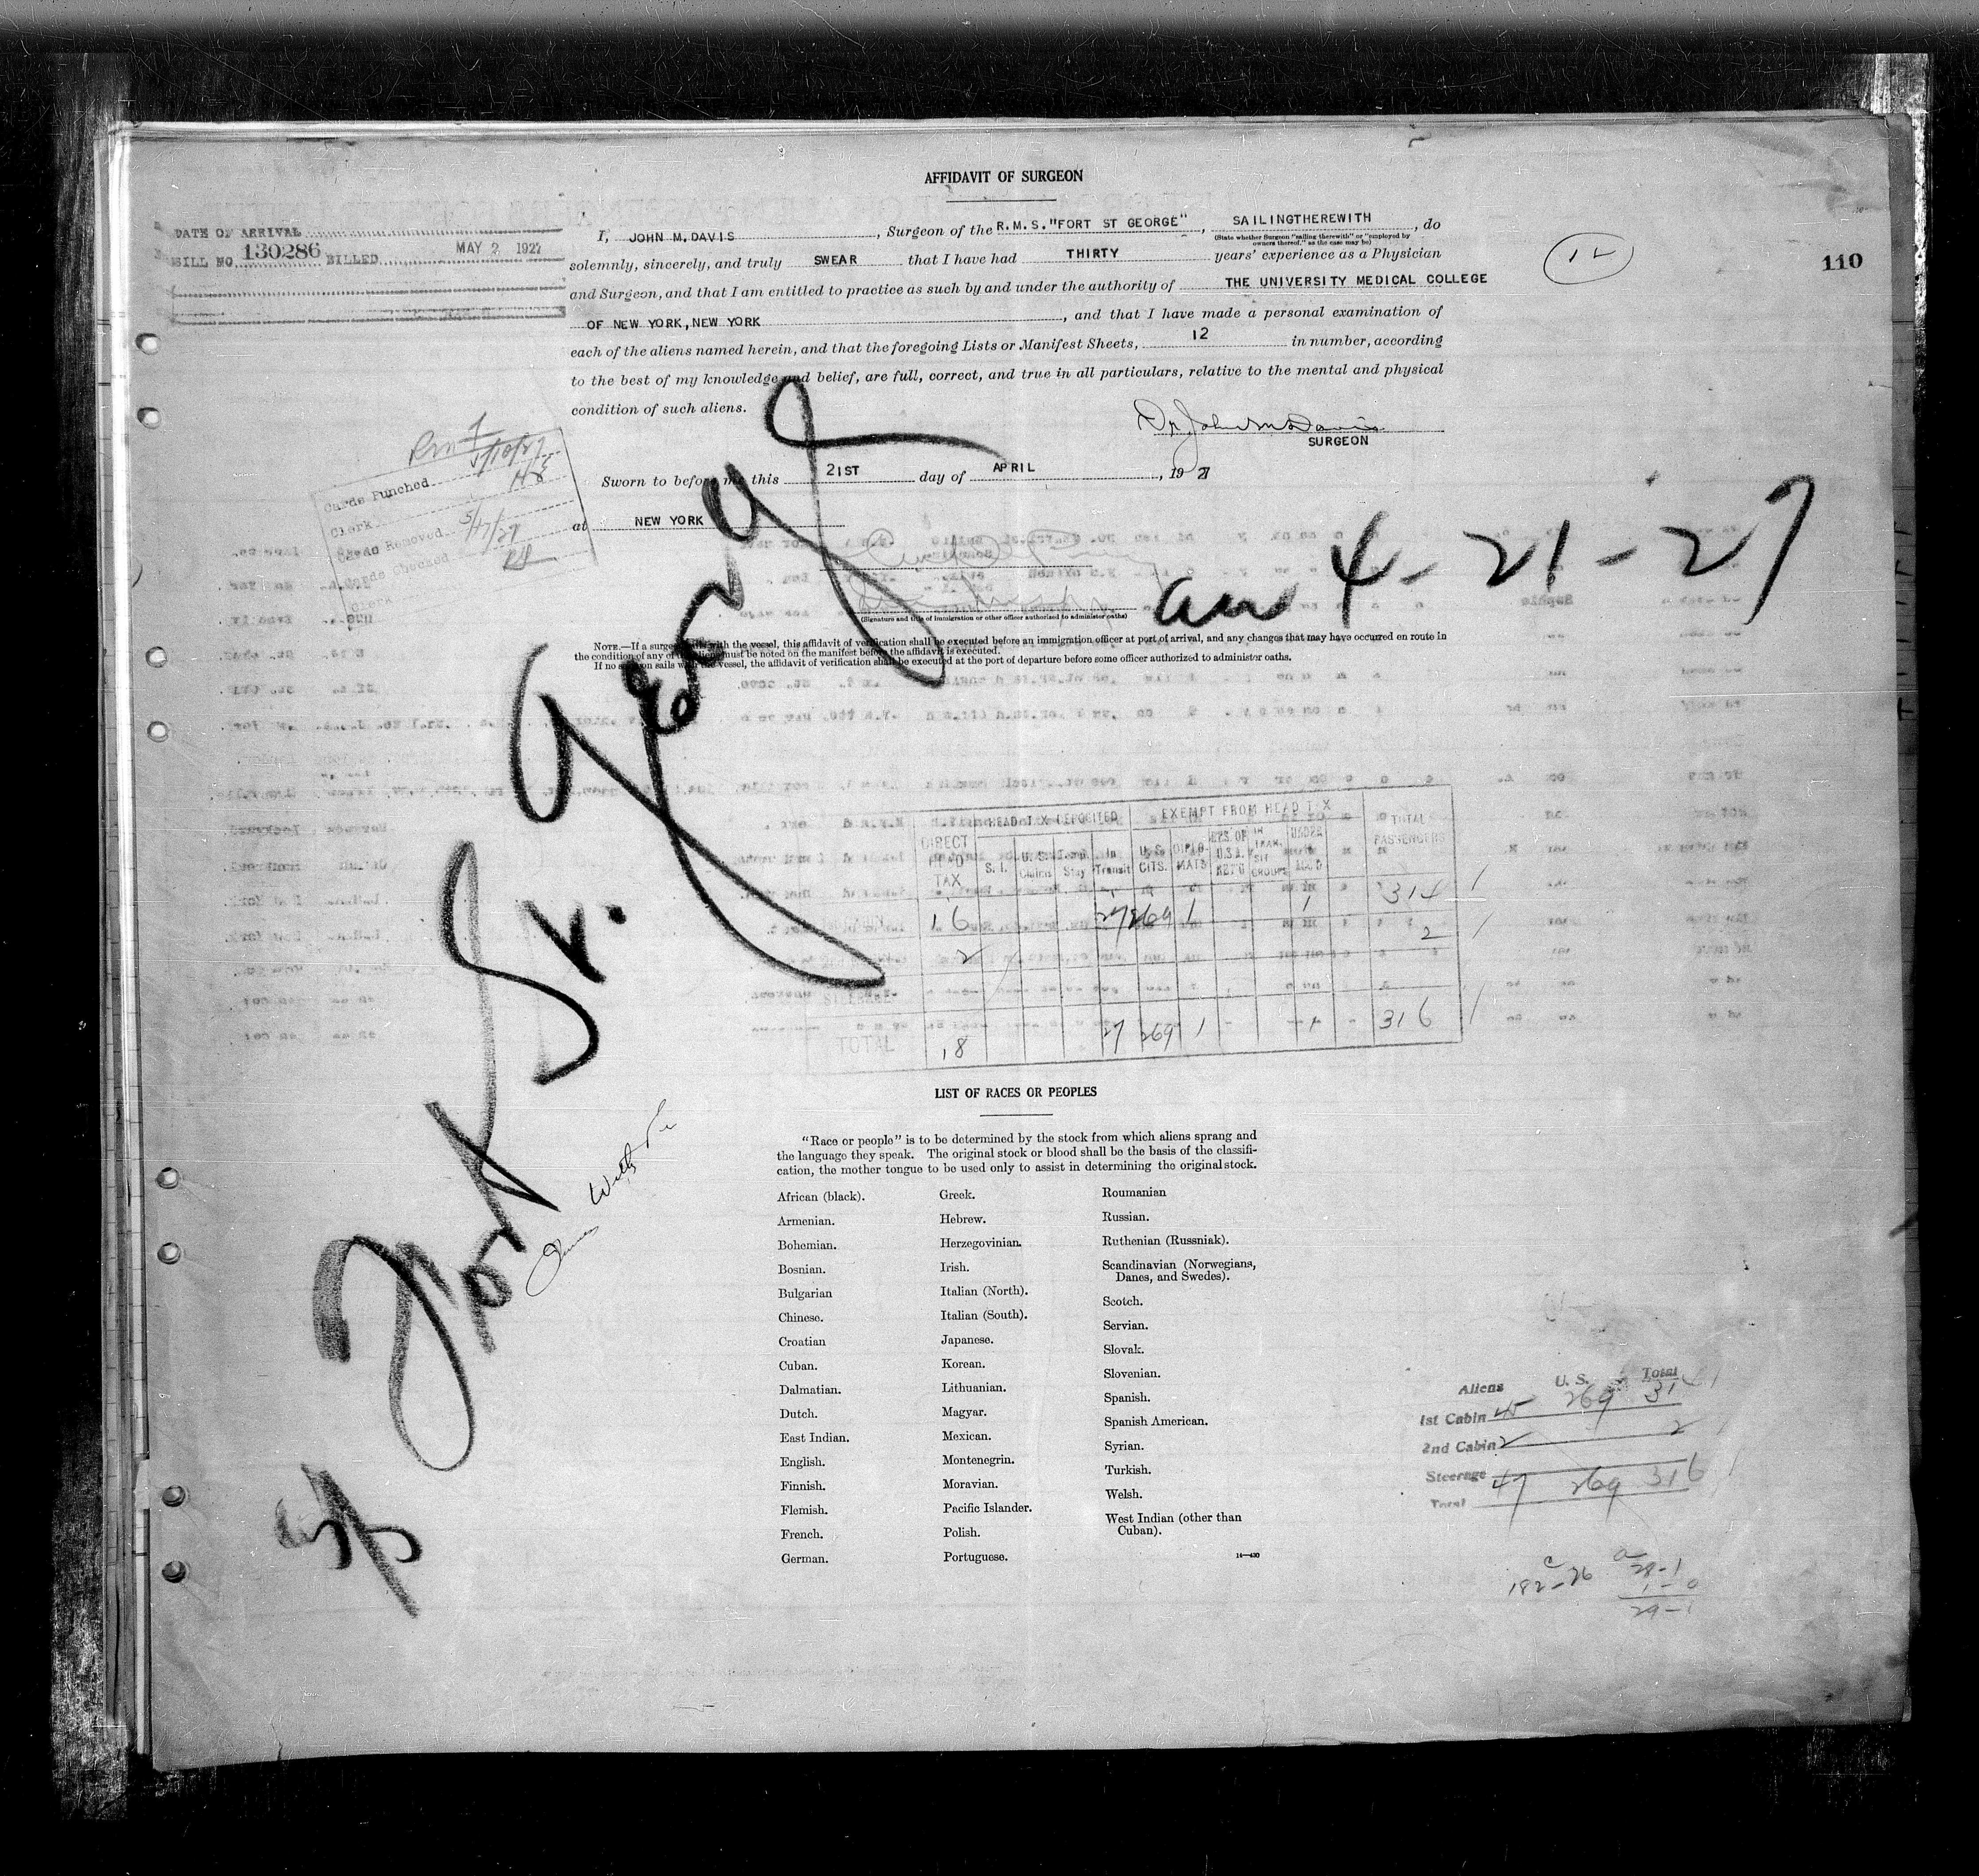 AFFIDAVIT OF SURGEON
DATE OF ARRIVAL
BILL NO. 130286 BILLED MAY 2 1927
110
12
I, JOHN M. DAVIS, Surgeon of the R.M.S. "FORT ST GEORGE", SAILINGTHEREWITH, do
(State whether Surgeon "sailing therewith" or "employed by
owners thereof," as the case may be)
solemnly, sincerely, and truly SWEAR that I have had THIRTY years' experience as a Physician
and Surgeon, and that I am entitled to practice as such by and under the authority of THE UNIVERSITY MEDICAL COLLEGE
OF NEW YORK, NEW YORK, and that I have made a personal examination of
each of the aliens named herein, and that the foregoing Lists or Manifest Sheets, 12 in number, according
to the best of my knowledge and belief, are full, correct, and true in all particulars, relative to the mental and physical
condition of such aliens.
Dr. John M Davis
SURGEON
Sworn to before me this 21ST day of APRIL, 1927
at NEW YORK
(Signature and title of immigration or other officer authorized to administer oaths)
NOTE.—If a surgeon sails with the vessel, this affidavit of verification shall be executed before an immigration officer at port of arrival, and any changes that may have occurred en route in
the condition of any of the aliens must be noted on the manifest before the affidavit is executed.
If no surgeon sails with the vessel, the affidavit of verification shall be executed at the port of departure before some officer authorized to administer oaths.
Cards Punched 5/10/27
Clerk
Cards Removed 5/17/27
Cards Checked
Clerk
Fort St. George
arr 4-21-27
HEAD TAX DEPOSITED EXEMPT FROM HEAD TAX TOTAL PASSENGERS
DIRECT HEAD TAX S. I. U. S. Claims Temp Stay In Transit U. S. CITS. DIPLO-MATS RES. OF U.S.A. RET'G IN TRAN-SIT GROUPS UNDER
16 27 269 1 1 314 1
2 2 1
STEERAGE
TOTAL 18 27 269 1 - 1 - 316 1
LIST OF RACES OR PEOPLES
"Race or people" is to be determined by the stock from which aliens sprang and
the language they speak. The original stock or blood shall be the basis of the classifi-
cation, the mother tongue to be used only to assist in determining the original stock.
African (black).
Armenian.
Bohemian.
Bosnian.
Bulgarian
Chinese.
Croatian
Cuban.
Dalmatian.
Dutch.
East Indian.
English.
Finnish.
Flemish.
French.
German.
Greek.
Hebrew.
Herzegovinian.
Irish.
Italian (North).
Italian (South).
Japanese.
Korean.
Lithuanian.
Magyar.
Mexican.
Montenegrin.
Moravian.
Pacific Islander.
Polish.
Portuguese.
Roumanian
Russian.
Ruthenian (Russniak).
Scandinavian (Norwegians,
Danes, and Swedes).
Scotch.
Servian.
Slovak.
Slovenian.
Spanish.
Spanish American.
Syrian.
Turkish.
Welsh.
West Indian (other than
Cuban).
14—430
Aliens U. S. Total
1st Cabin 45 269 314 1
2nd Cabin 2 2
Steerage
Total 47 269 316 1
c a
182-26 28-1
1-0
29-1